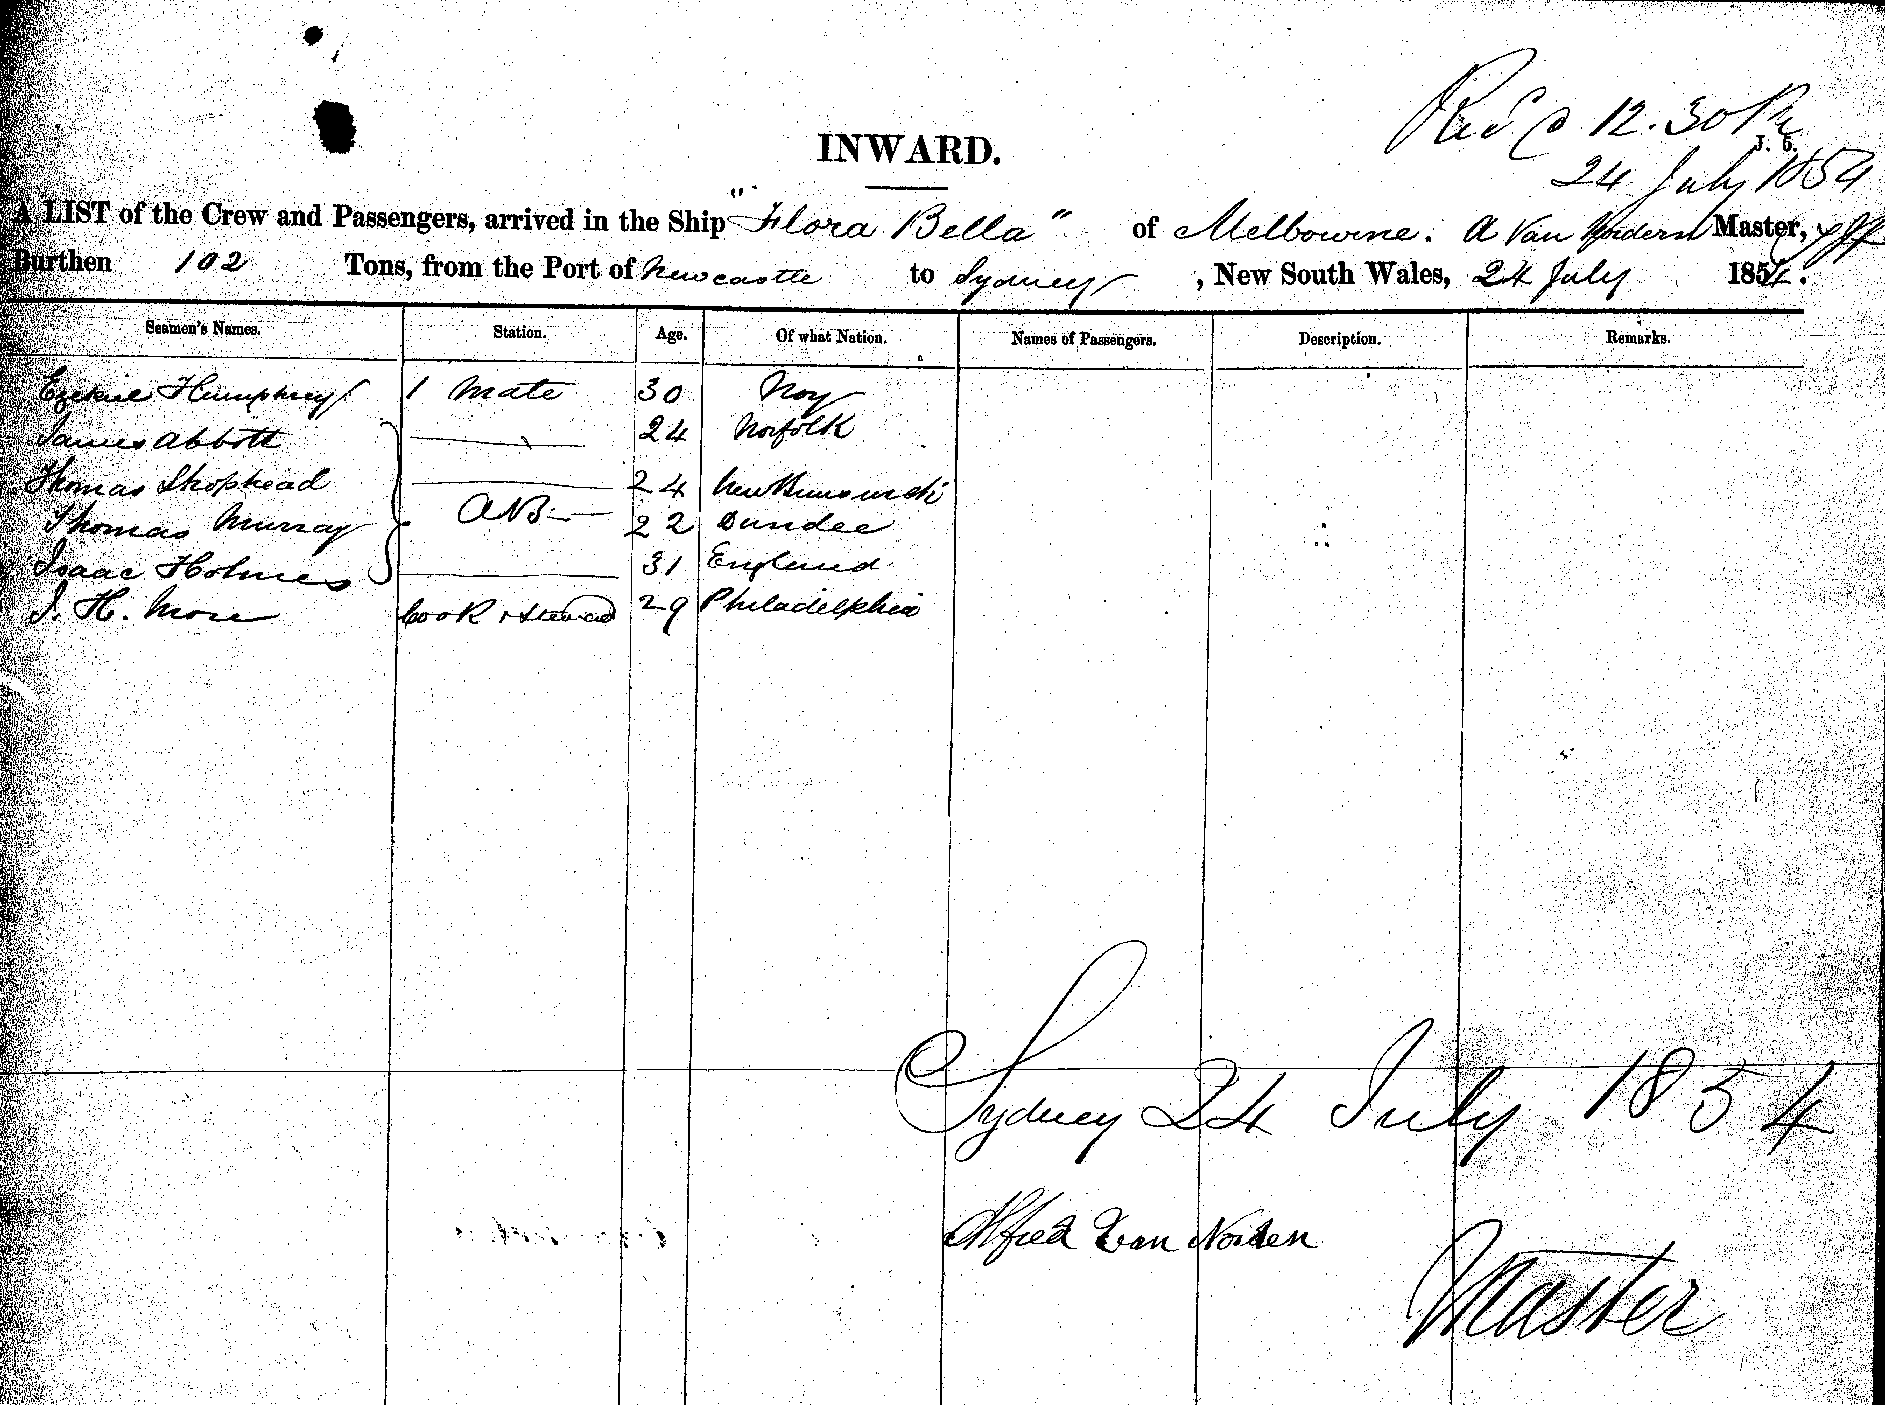 Recd @ 12.30 Pm
J. G.
24 July 1854
INWARD.
A LIST of the Crew and Passengers, arrived in the Ship "Flora Bella" of Melbourne. A Van Nordern Master,
Burthen 102 Tons, from the Port of Newcastle to Sydney, New South Wales, 24 July 1854.
Seamen's Names. Station. Age. Of what Nation. Names of Passengers. Description. Remarks.
Ezekiel Humphrey 1 Mate 30
James Abbott 24 Norfolk
Thomas Shophead 24 New Brunswick
Thomas Murray AB 22 Dundee
Isaac Holmes 31 England
J. H. More Cook & Steward 29 Philadelphia
Sydney 24 July 1854
Alfred Van Norden
Master